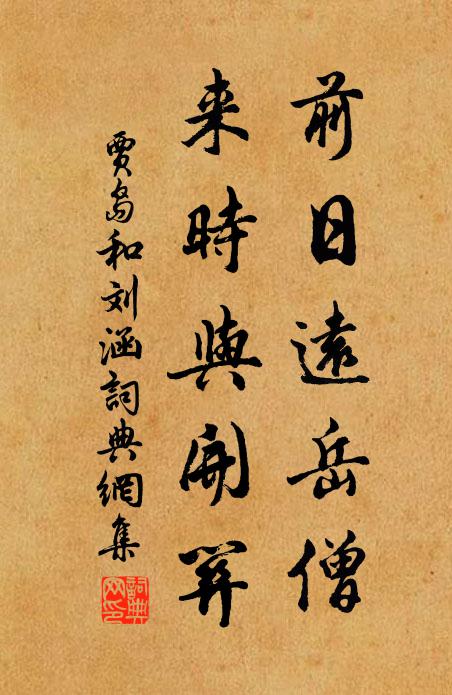 前日遠岳僧
来時與開關
賈島和刘涵詞典網集
詞典网印